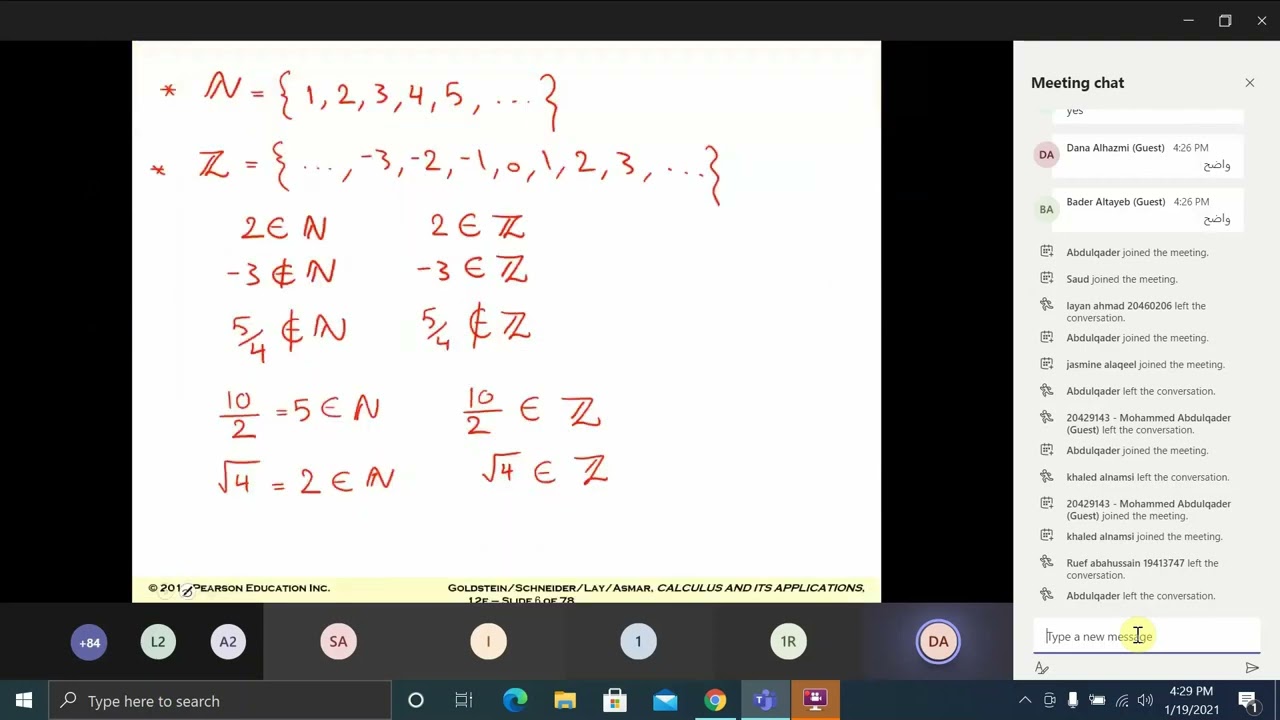 * ℕ = { 1, 2, 3, 4, 5, ... }
* ℤ = { ..., -3, -2, -1, 0, 1, 2, 3, ... }
2 ∈ ℕ 2 ∈ ℤ
-3 ∉ ℕ -3 ∈ ℤ
5/4 ∉ ℕ 5/4 ∉ ℤ
10/2 = 5 ∈ ℕ 10/2 ∈ ℤ
√4 = 2 ∈ ℕ √4 ∈ ℤ
PEARSON EDUCATION INC.
GOLDSTEIN/SCHNEIDER/LAY/ASMAR, CALCULUS AND ITS APPLICATIONS,
12E – SLIDE 6 OF 78
+84 L2 A2 SA I 1 1R DA
Meeting chat
yes
DA Dana Alhazmi (Guest) 4:26 PM
واضح
BA Bader Altayeb (Guest) 4:26 PM
واضح
Abdulqader joined the meeting.
Saud joined the meeting.
layan ahmad 20460206 left the
conversation.
Abdulqader joined the meeting.
jasmine alaqeel joined the meeting.
Abdulqader left the conversation.
20429143 - Mohammed Abdulqader
(Guest) left the conversation.
Abdulqader joined the meeting.
khaled alnamsi left the conversation.
20429143 - Mohammed Abdulqader
(Guest) joined the meeting.
khaled alnamsi joined the meeting.
Ruef abahussain 19413747 left the
conversation.
Abdulqader left the conversation.
Type a new message
Type here to search
4:29 PM
1/19/2021
1